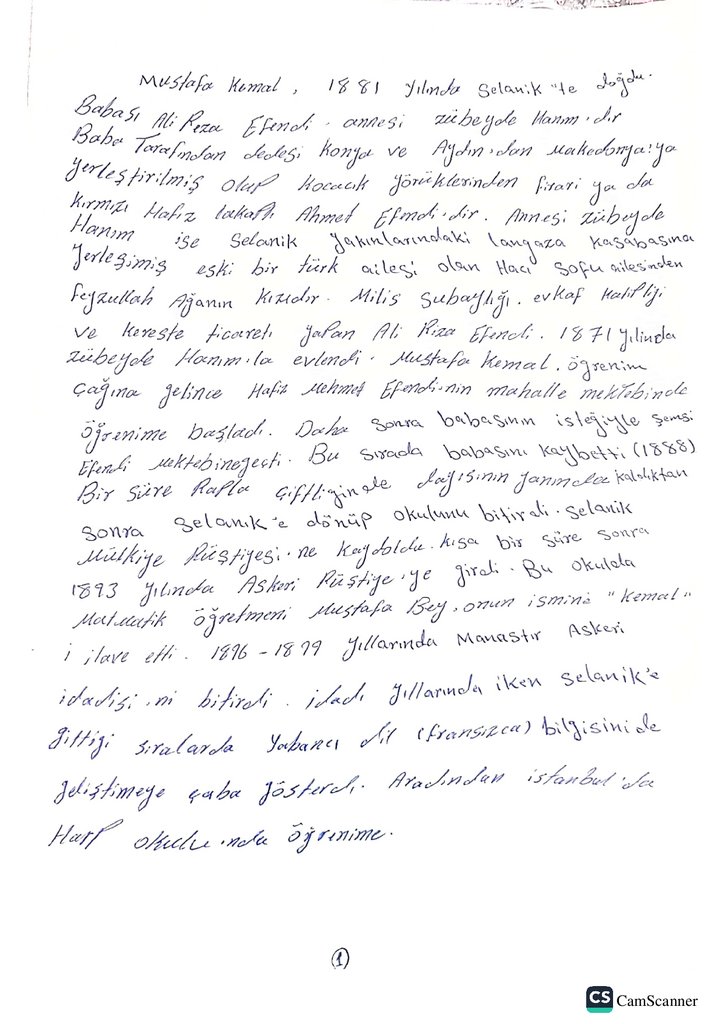 Mustafa Kemal, 1881 yılında Selanik'te doğdu.
Babası Ali Rıza Efendi. annesi zübeyde Hanım.dır
Baba Tarafından dedesi Konya ve Aydın.dan Makedonya'ya
yerleştirilmiş olup Kocacık yörüklerinden firari ya da
kırmızı Hafız lakaplı Ahmet Efendi.dir. Annesi zübeyde
Hanım ise Selanik yakınlarındaki langaza kasabasına
yerleşimiş eski bir türk ailesi olan Hacı Sofu ailesinden
feyzullah Ağanın kızıdır. Milis Subaylığı. evkaf katipliği
ve kereste ticareti yapan Ali Rıza Efendi. 1871 yılında
zübeyde Hanım.la evlendi. Mustafa Kemal. öğrenim
çağına gelince Hafız Mehmet Efendi.nin mahalle mektebinde
öğrenime başladı. Daha sonra babasının isteğiyle şemsi
Efendi Mektebinegeçti. Bu sırada babasını kaybetti (1888)
Bir süre Rapla çiftliğinde dayısının yanında kaldıktan
sonra Selanik'e dönüp okulunu bitirdi. Selanik
Mülkiye Rüştiyesi.ne kaydoldu. kısa bir süre sonra
1893 yılında Askeri Rüştiye.ye girdi. Bu okulda
Matmatik öğretmeni Mustafa Bey. onun ismine "Kemal"
i ilave etti. 1896-1899 yıllarında Manastır Askeri
idadisi.ni bitirdi. idadi yıllarında iken Selanik'e
gittiği sıralarda yabancı dil (fransızca) bilgisinide
geliştimeye çaba gösterdi. Aradından istanbul'da
Harp okulu.nda öğrenime.
1
CS CamScanner